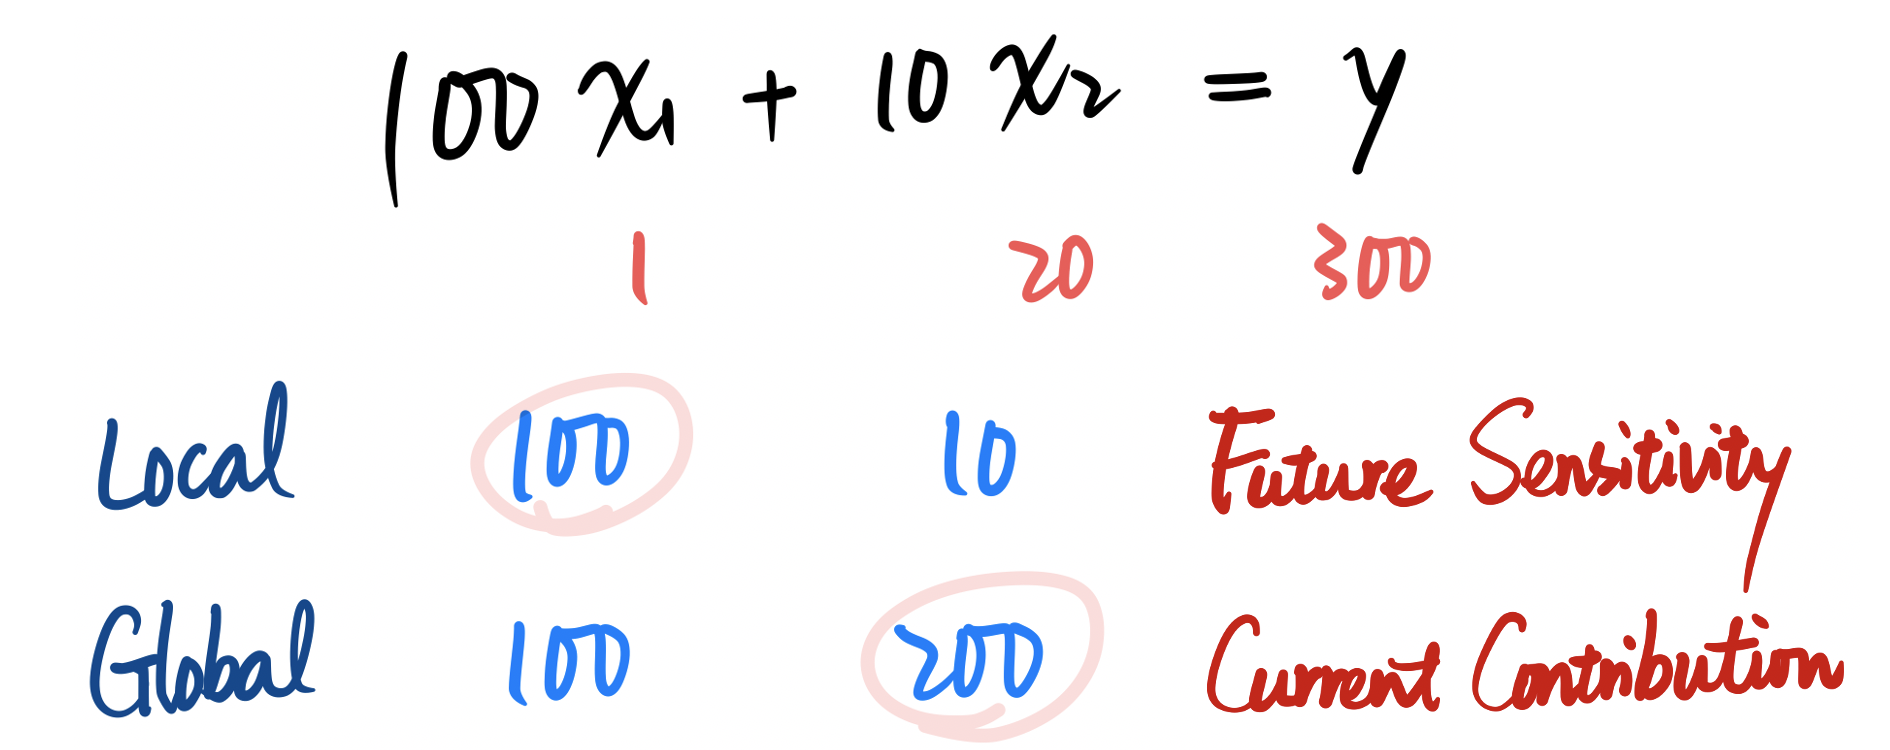 100 x₁ + 10 x₂ = y
1 20 300
Local 100 10 Future Sensitivity
Global 100 200 Current Contribution